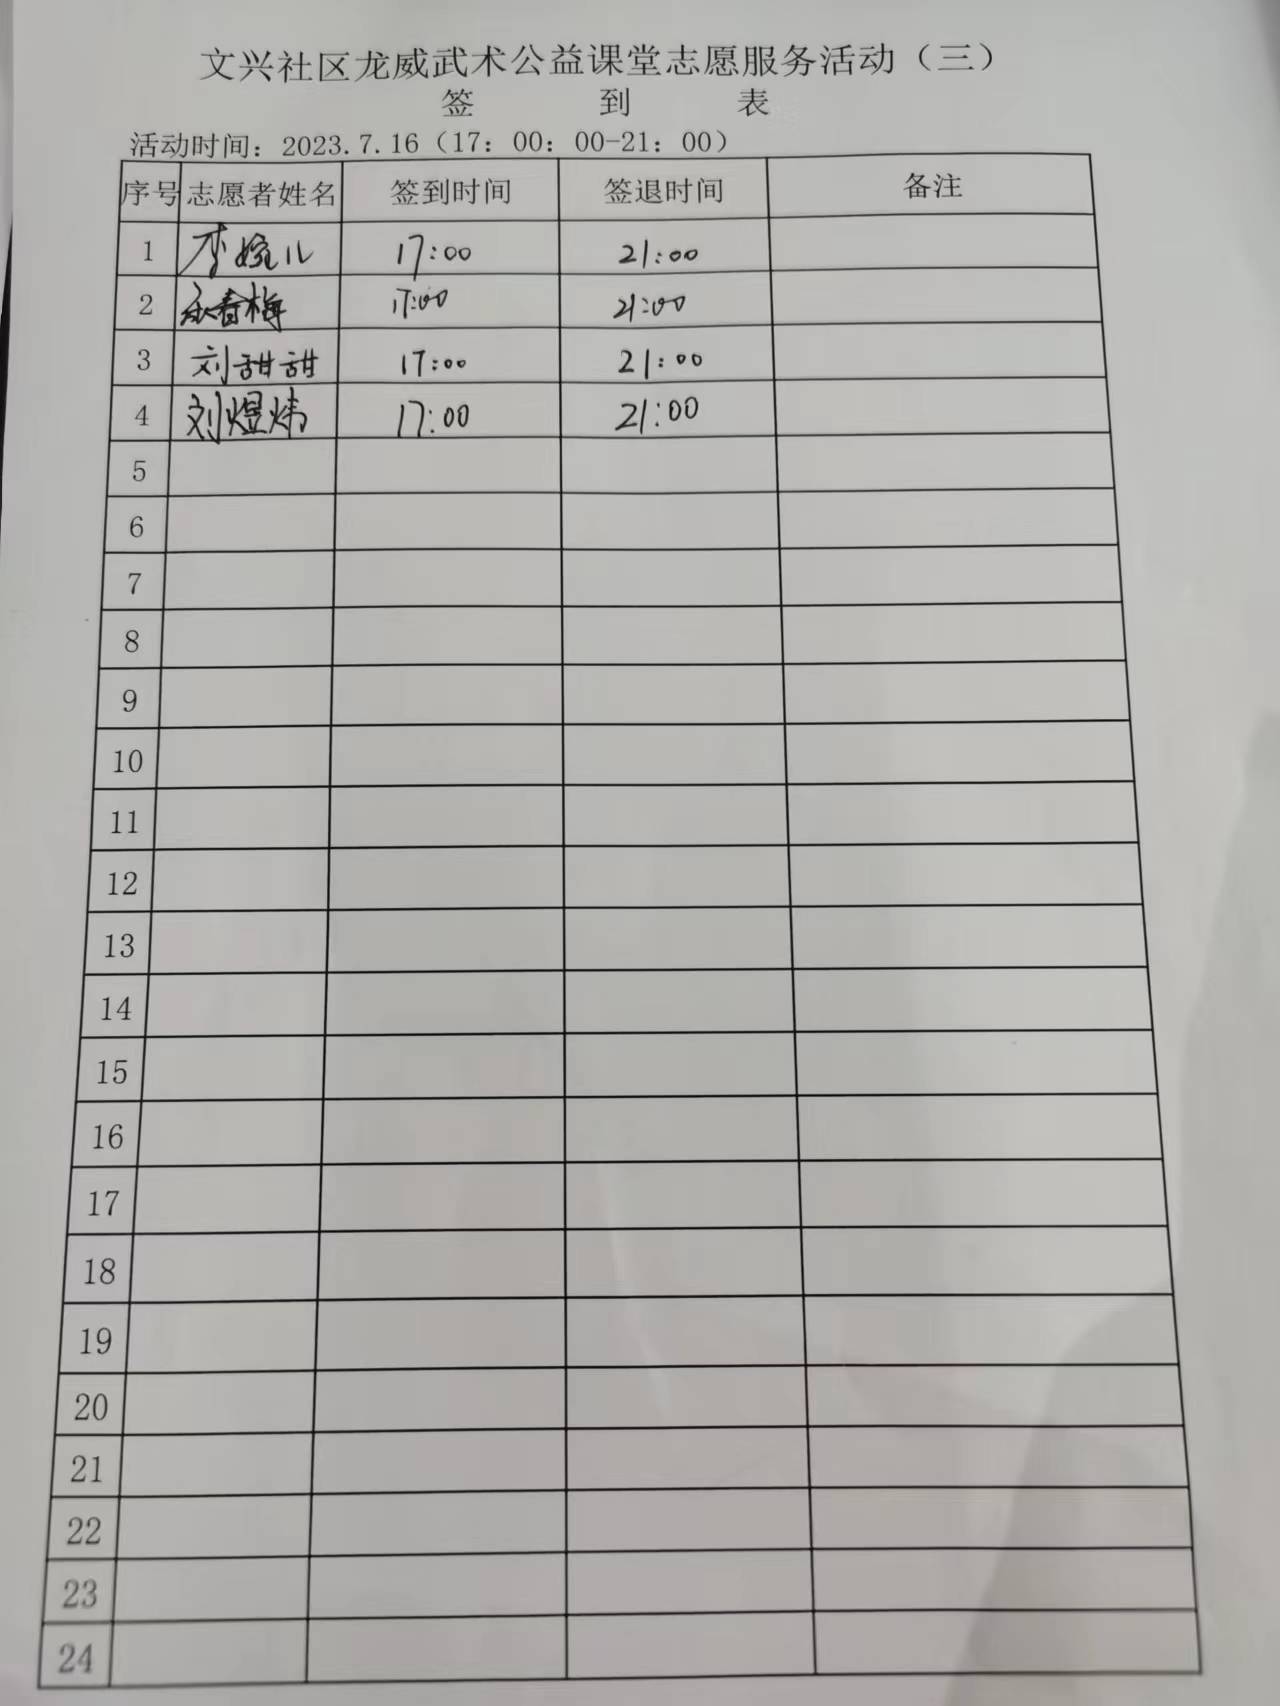 文兴社区龙威武术公益课堂志愿服务活动（三）
签 到 表
活动时间：2023.7.16（17：00：00-21：00）
序号 志愿者姓名 签到时间 签退时间 备注
1 李婉儿 17:00 21:00
2 春梅 17:00 21:00
3 刘甜甜 17:00 21:00
4 刘煜炜 17:00 21:00
5
6
7
8
9
10
11
12
13
14
15
16
17
18
19
20
21
22
23
24